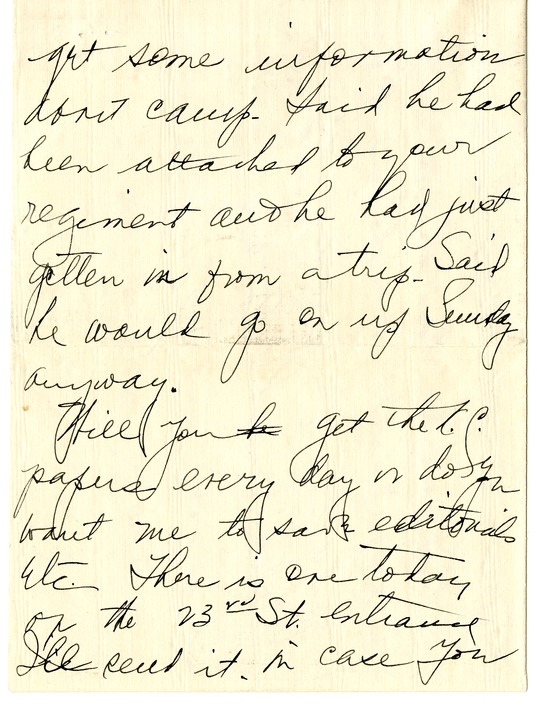 get some information
abont camp. Said he had
been attached to your
regiment and he had just
gotten in from a trip. Said
he would go on up Sunday
anyway.
Will you be get the K.C.
papers every day or do you
want me to save editorials
etc. There is one today
on the 23rd St. entrance
I'll send it in case you